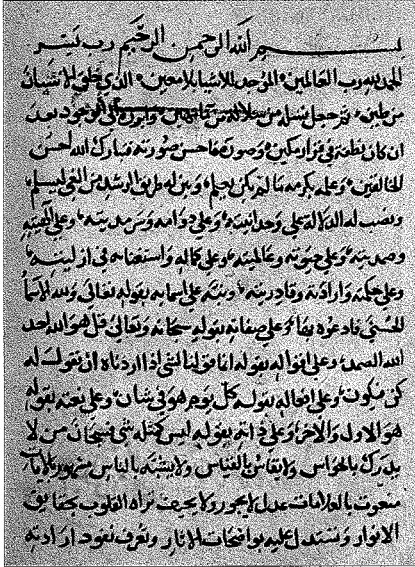 بسم الله الرحمن الرحيم رب يسر
الحمد لله رب العالمين الموجد للاشيا بلا معين الذي خلق الانسان
من طين ثم جعل نسله من سلالة من ماء مهين وابرزه الى الوجود بعد
ان كان نطفة في قرار مكين وصوره فاحسن صورته تبارك الله احسن
الخالقين وعلمه بكرمه ما لم يكن يعلم وبين له طريق الرشد من الغي ليسلم
ونصب له الدلالة على وحدانيته وعلى دوامه وسرمديته وعلى
وصمديته وعلى حيوته وعالميته وعلى كماله واستغنايه في ازليته
وعلى حكمته وارادته وقادريته ونبه على اسمايه بقوله تعالى ولله الاسما
الحسنى فادعوه بها وعلى صفاته بقوله سبحانه وتعالى قل هو الله احد
الله الصمد وعلى اقواله بقوله انما قولنا لشي اذا اردناه ان نقول له
كن فيكون وعلى افعاله بقوله كل يوم هو في شان وعلى نعته بقوله
هو الاول والاخر وعلى ذاته بقوله ليس كمثله شي فسبحان من لا
يدرك بالحواس ولا يقاس بالقياس ولا يشبه بالناس مشهور بالايات
منعوت بالعلامات عدل لا يجور ولا يحيف تراه القلوب بحقايق
الانوار وتستدل عليه بواضحات الاثار وتعرف نفوذ ارادته